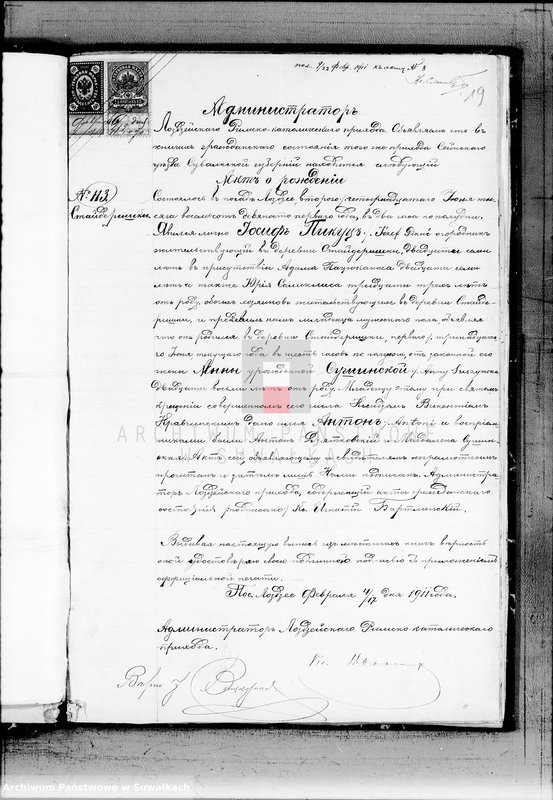 пол. 9/22 Февр. 1911 къ акту № 8
19
Администраторъ
Лоздзейскаго Римско-католическаго прихода Объявляетъ что въ
книгахъ гражданскаго состоянія того же прихода Сейнскаго
уѣзда Сувалкской губерніи находится слѣдующій
Актъ о рожденіи
№ 113
Стайдеришки.
Состоялось въ посадѣ Лоздзее, втораго, четырнадцатаго Іюня ты-
сяча восемьсотъ девяносто перваго года, въ два часа пополудни.
Явился лично Іосифъ Пикусъ, Józef Pikus огородникъ
жительствующій въ деревни Стайдеришки, двадцати семи
лѣтъ въ присутствіи Адама двадцати семи
лѣтъ а также Юрія тридцати трехъ лѣтъ
отъ роду, обоихъ жительствующихъ въ деревни Стайде-
ришки, и предъявилъ намъ младенца мужескаго пола объявляя
что онъ родился въ деревни Стайдеришки, перваго, тринадца-
таго Іюня текущаго года въ шесть часовъ по полуночи, отъ законной его
жены Анны урожденной Сушинской / Anny Suszyńska
двадцати восьми лѣтъ отъ роду. Младенцу этому при святомъ
крещеніи совершенномъ сего числа Ксендзомъ Викентіемъ
дано имя Антонъ / Antoni а воспріем-
никами были Антонъ и Магдалена
Актъ сей объявляющему и свидѣтелямъ неграмотнымъ
прочитанъ и затѣмъ лишь Нами подписанъ. Администра-
торъ Лоздзейскаго прихода, содержащій акты гражданскаго
состоянія (подписано) Кс. Игнатій
Выдавая настоящую выпись изъ мѣстныхъ книгъ вѣрность
оной удостовѣряю моею подписью съ приложеніемъ
оффиціальной печати.
Пос. Лоздзее Февраля 4/17 дня 1911 года.
Администраторъ Лоздзейскаго Римско-католическаго
прихода.
ARCHIWUM PAŃSTWOWE
W SUWAŁKACH
Archiwum Państwowe w Suwałkach